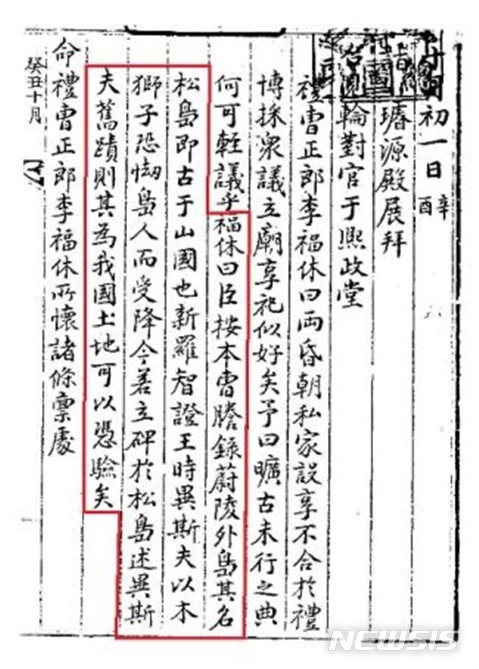 十月初一日 辛酉
璿源殿展拜
召見輪對官于熙政堂
禮曹正郎李福休曰兩昏朝私家設享不合於禮
博採衆議立廟享祀似好矣予曰曠古未行之典
何可輕議乎福休曰臣按本曹謄錄蔚陵外島其名
松島即古于山國也新羅智證王時異斯夫以木
獅子恐㤼島人而受降今若立碑於松島述異斯
夫舊蹟則其為我國土地可以憑驗矣
命禮曹正郎李福休所懷諸條稟處
癸丑十月
NEWSIS